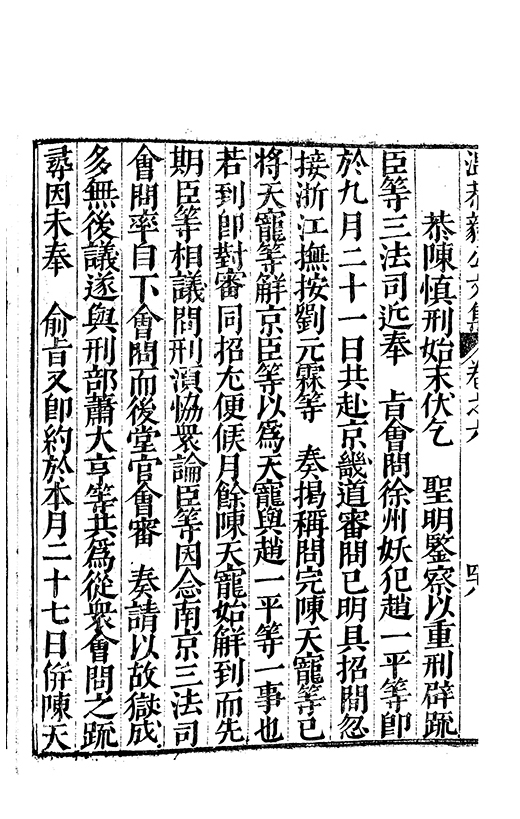 溫恭毅公文集 卷之六 四八
恭陳慎刑始末伏乞 聖明鑒察以重刑辟疏
臣等三法司近奉 㫖會問徐州妖犯趙一平等即
於九月二十一日共赴京畿道審問已明具招間忽
接浙江撫按劉元霖等 奏揭稱問完陳天寵等已
將天寵等解京臣等以爲天寵與趙一平等一事也
若到即對審同招尢便候月餘陳天寵始解到而先
期臣等相議間刑湏恊衆論臣等因念南京三法司
會問率自下會問而後堂官會審 奏請以故獄成
多無後議遂與刑部蕭大亨等共爲從衆會問之疏
尋因未奉 俞㫖又即約於本月二十七日併陳天